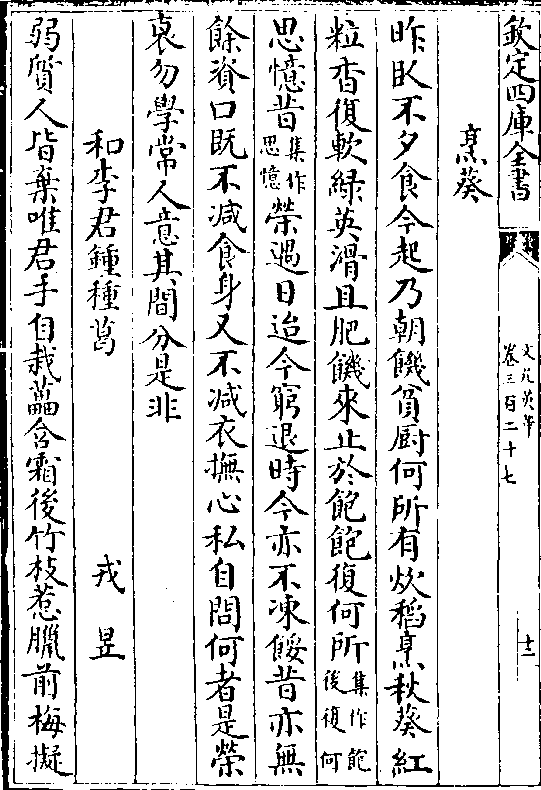 欽定四庫全書
文苑英華
卷三百二十七
十二
烹葵
昨臥不夕食今起乃朝饑貧厨何所有炊稻烹秋葵紅
粒香復軟緑英滑且肥饑來止於飽飽復何所集作飽後復何
思憶昔集作思憶榮遇日迨今窮退時今亦不凍餒昔亦無
餘資口既不减食身又不减衣撫心私自問何者是榮
衰勿學常人意其間分是非
和李君鍾種葛　戎昱
弱質人皆棄唯君手自栽藟含霜後竹枝惹臘前梅擬